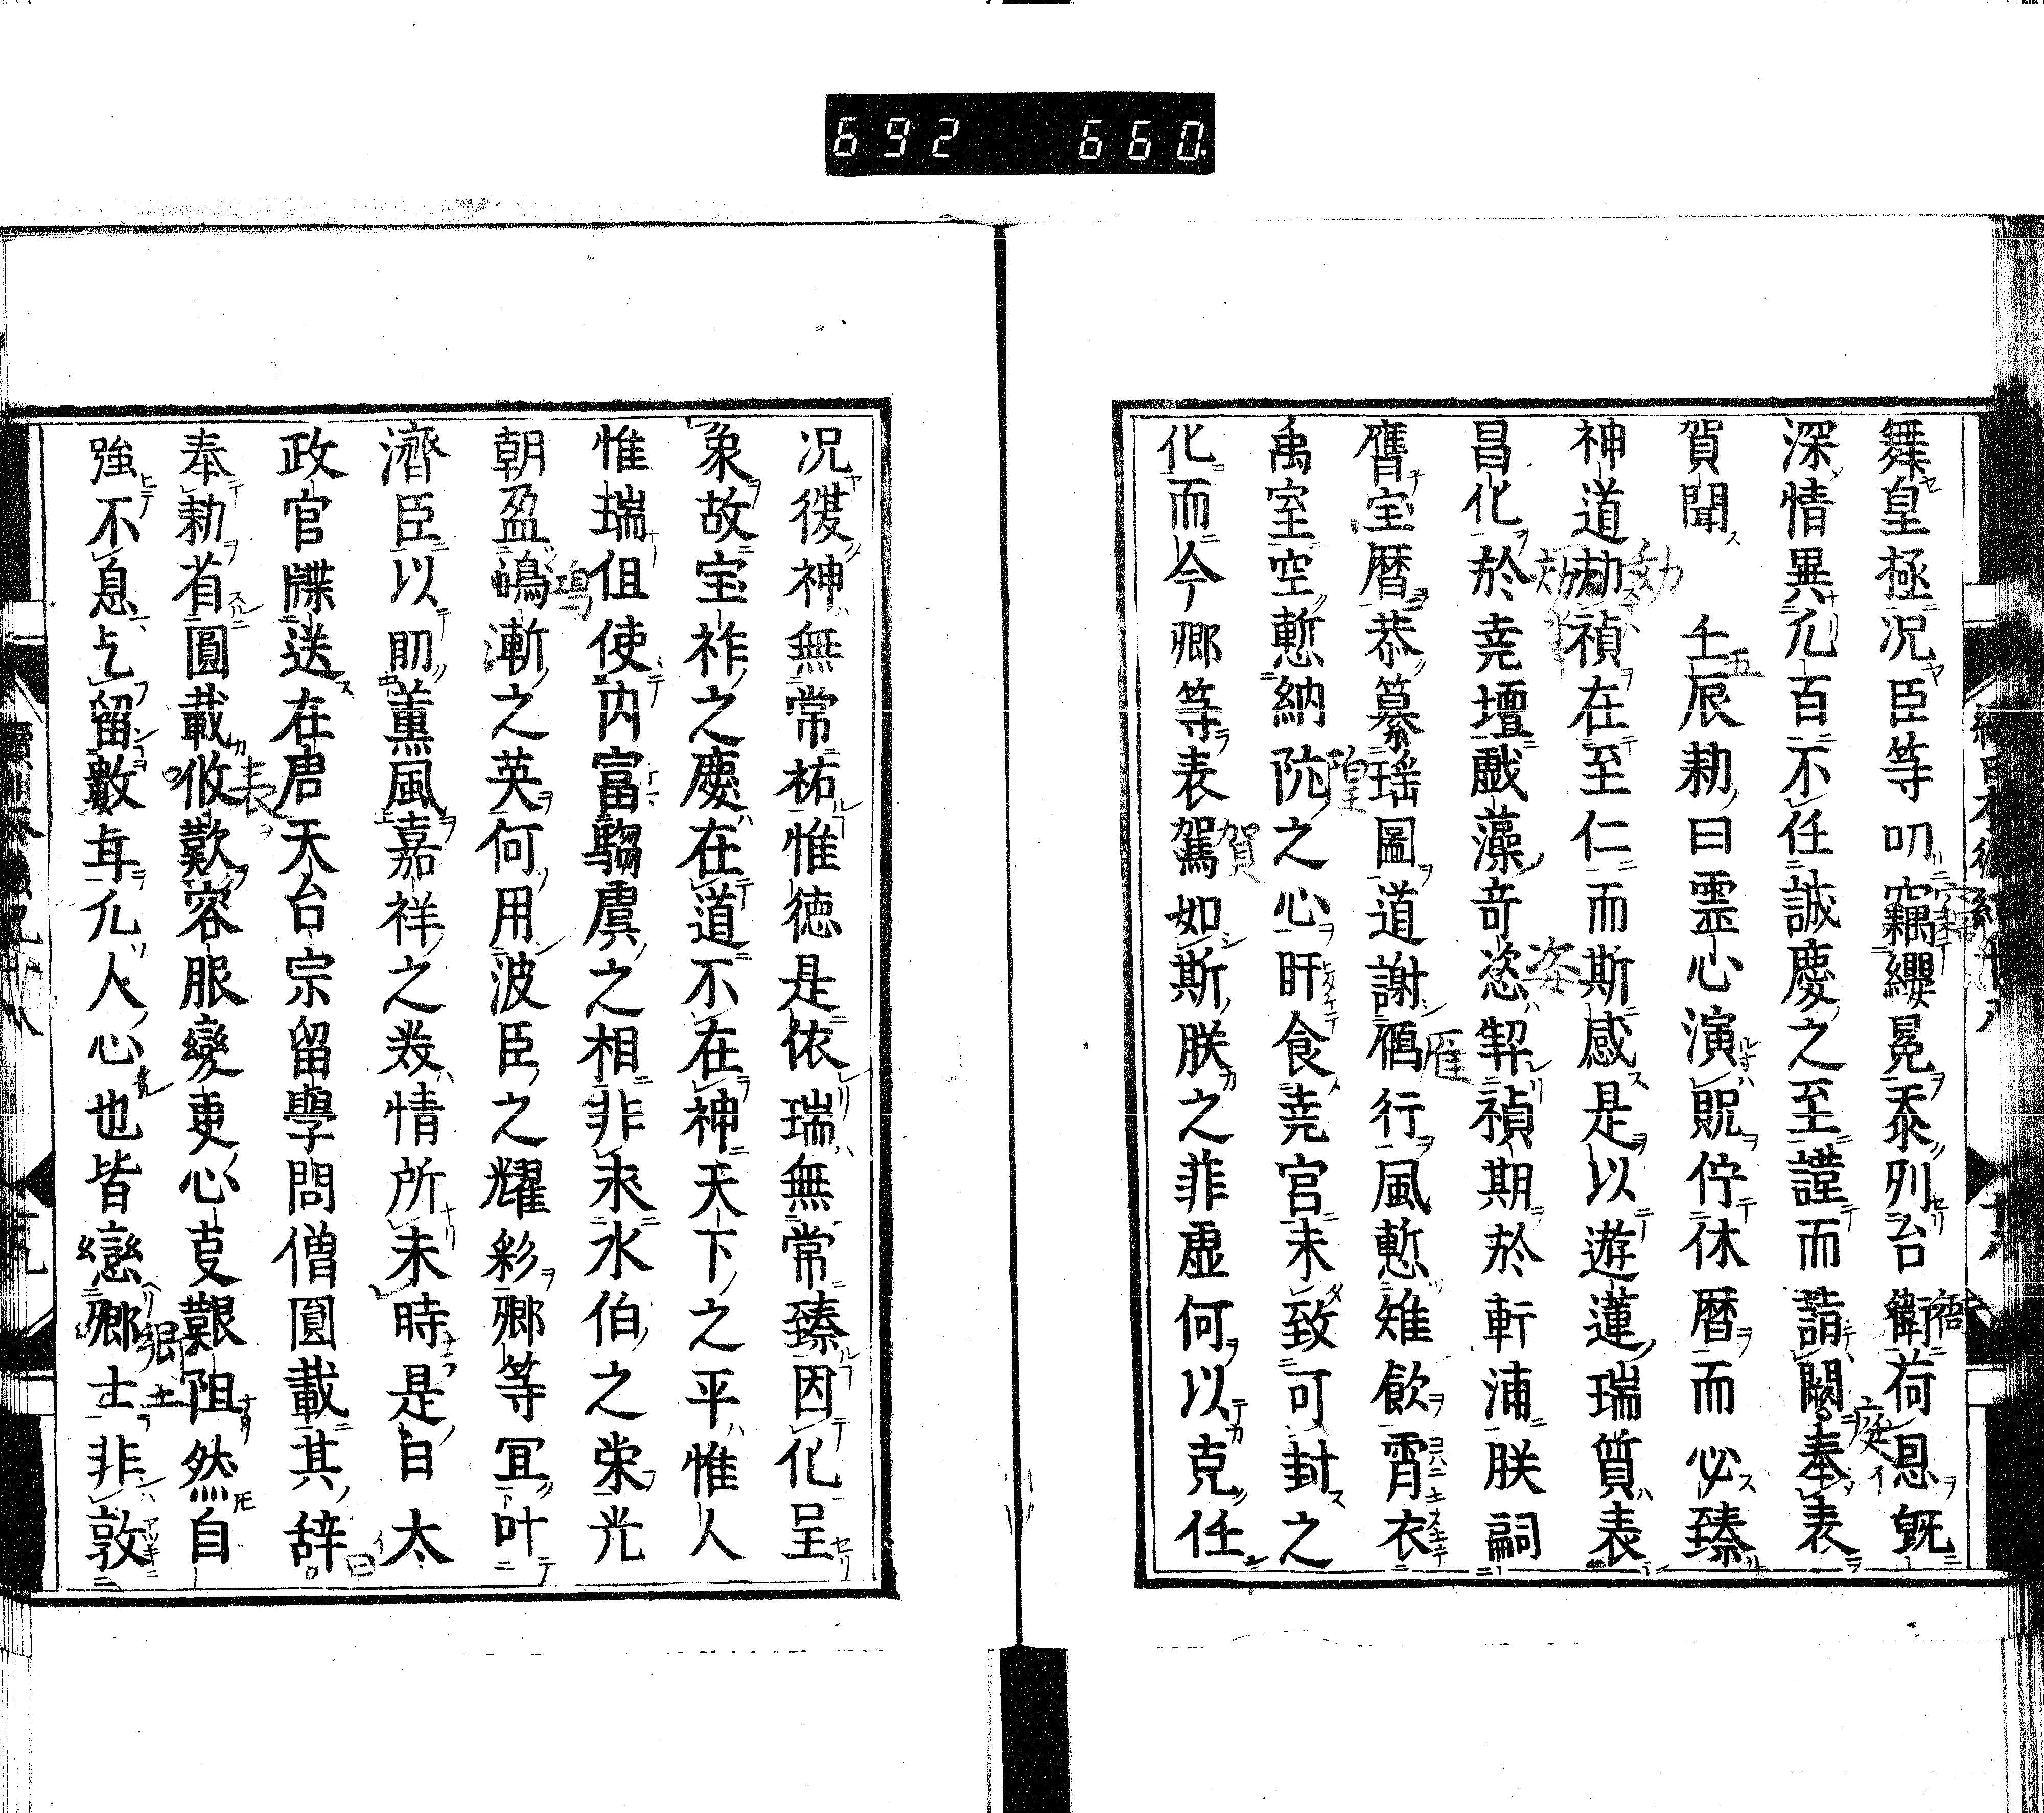 692 660
舞皇極况臣等叨竊纓冕忝列台衛荷恩既
深情異凢百不任誠慶之至謹而詣闕奉表
賀聞 壬辰勅曰霊心演貺佇休暦而必臻
神道効禎在至仁而斯感是以遊蓮瑞質表
昌化於尭壇戯藻奇恣挈禎期於軒浦朕嗣
膺宝暦恭纂瑶圖道謝鴈行風慙雉飲霄衣
禹室空慙納阤之心旰食尭官未致可封之
化而今卿等表駕如斯朕之菲虚何以克任
况復神無常祐惟徳是依瑞無常臻因化呈
象故宝祚之慶在道不在神天下之平惟人
惟瑞但使内富騶虞之相非求水伯之栄光
朝盈鳴漸之英何用波臣之耀彩卿等冝叶
濟臣以助薫風嘉祥之義情所未時是日太
政官牒送在唐天台宗留學問僧圓載其辞
奉勅省圓載収歎容服變更心支艱阻然自
強不息乞留數年凢人心也皆戀郷土非敦